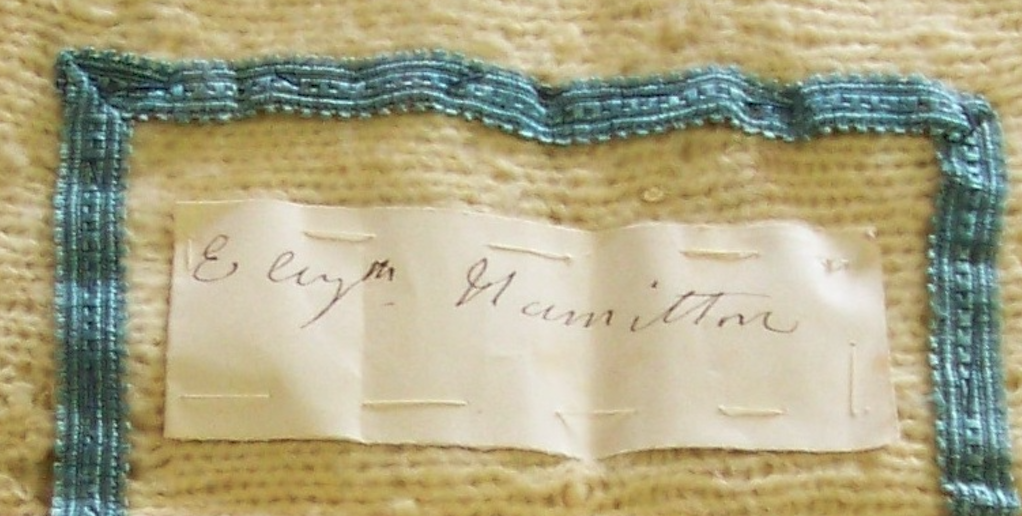 Elizᵗʰ. Hamilton